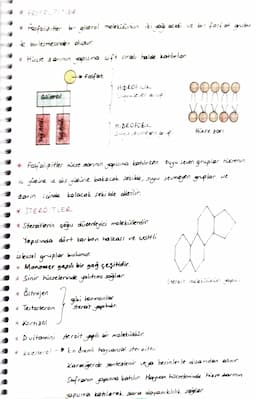 * FOSFOLİPİTLER
* Fosfolipitler bir gliserol molekülünün iki yağ asidi ve bir fosfat grubu
ile birleşmesinden oluşur.
* Hücre zarının yapısına çift sıralı halde katılırlar.
Fosfat
Gliserol
HİDROFİLİK
Yağ asidi
Yağ asidi
HİDROFOBİK
Hücre zarı
* Fosfolipitler hücre zarının yapısına katılırken suyu seven gruplar hücrenin
iç yüzüne ve dış yüzüne bakacak şekilde, suyu sevmeyen gruplar ve
zarın içinde kalacak şekilde dizilir.
* STEROİTLER
* Steroitlerin çoğu düzenleyici moleküllerdir.
Yapısında dört karbon halkası ve çeşitli
gruplar bulunur.
* Monomer yapılı bir yağ çeşitidir.
* Sinir hücrelerinde yalıtımı sağlar.
* Östrojen
* Testosteron
* Kortizol
gibi hormonlar
steroit yapılıdır.
Steroit molekülünün yapısı
* D vitamini steroit yapılı bir moleküldür.
* Kolesterol → En önemli hayvansal steroittir.
Karaciğerde sentezlenir veya besinlerle dışarıdan alınır.
Safranın yapısına katılır. Hayvan hücrelerinde hücre zarının
yapısına katılarak zara dayanıklılık sağlar.